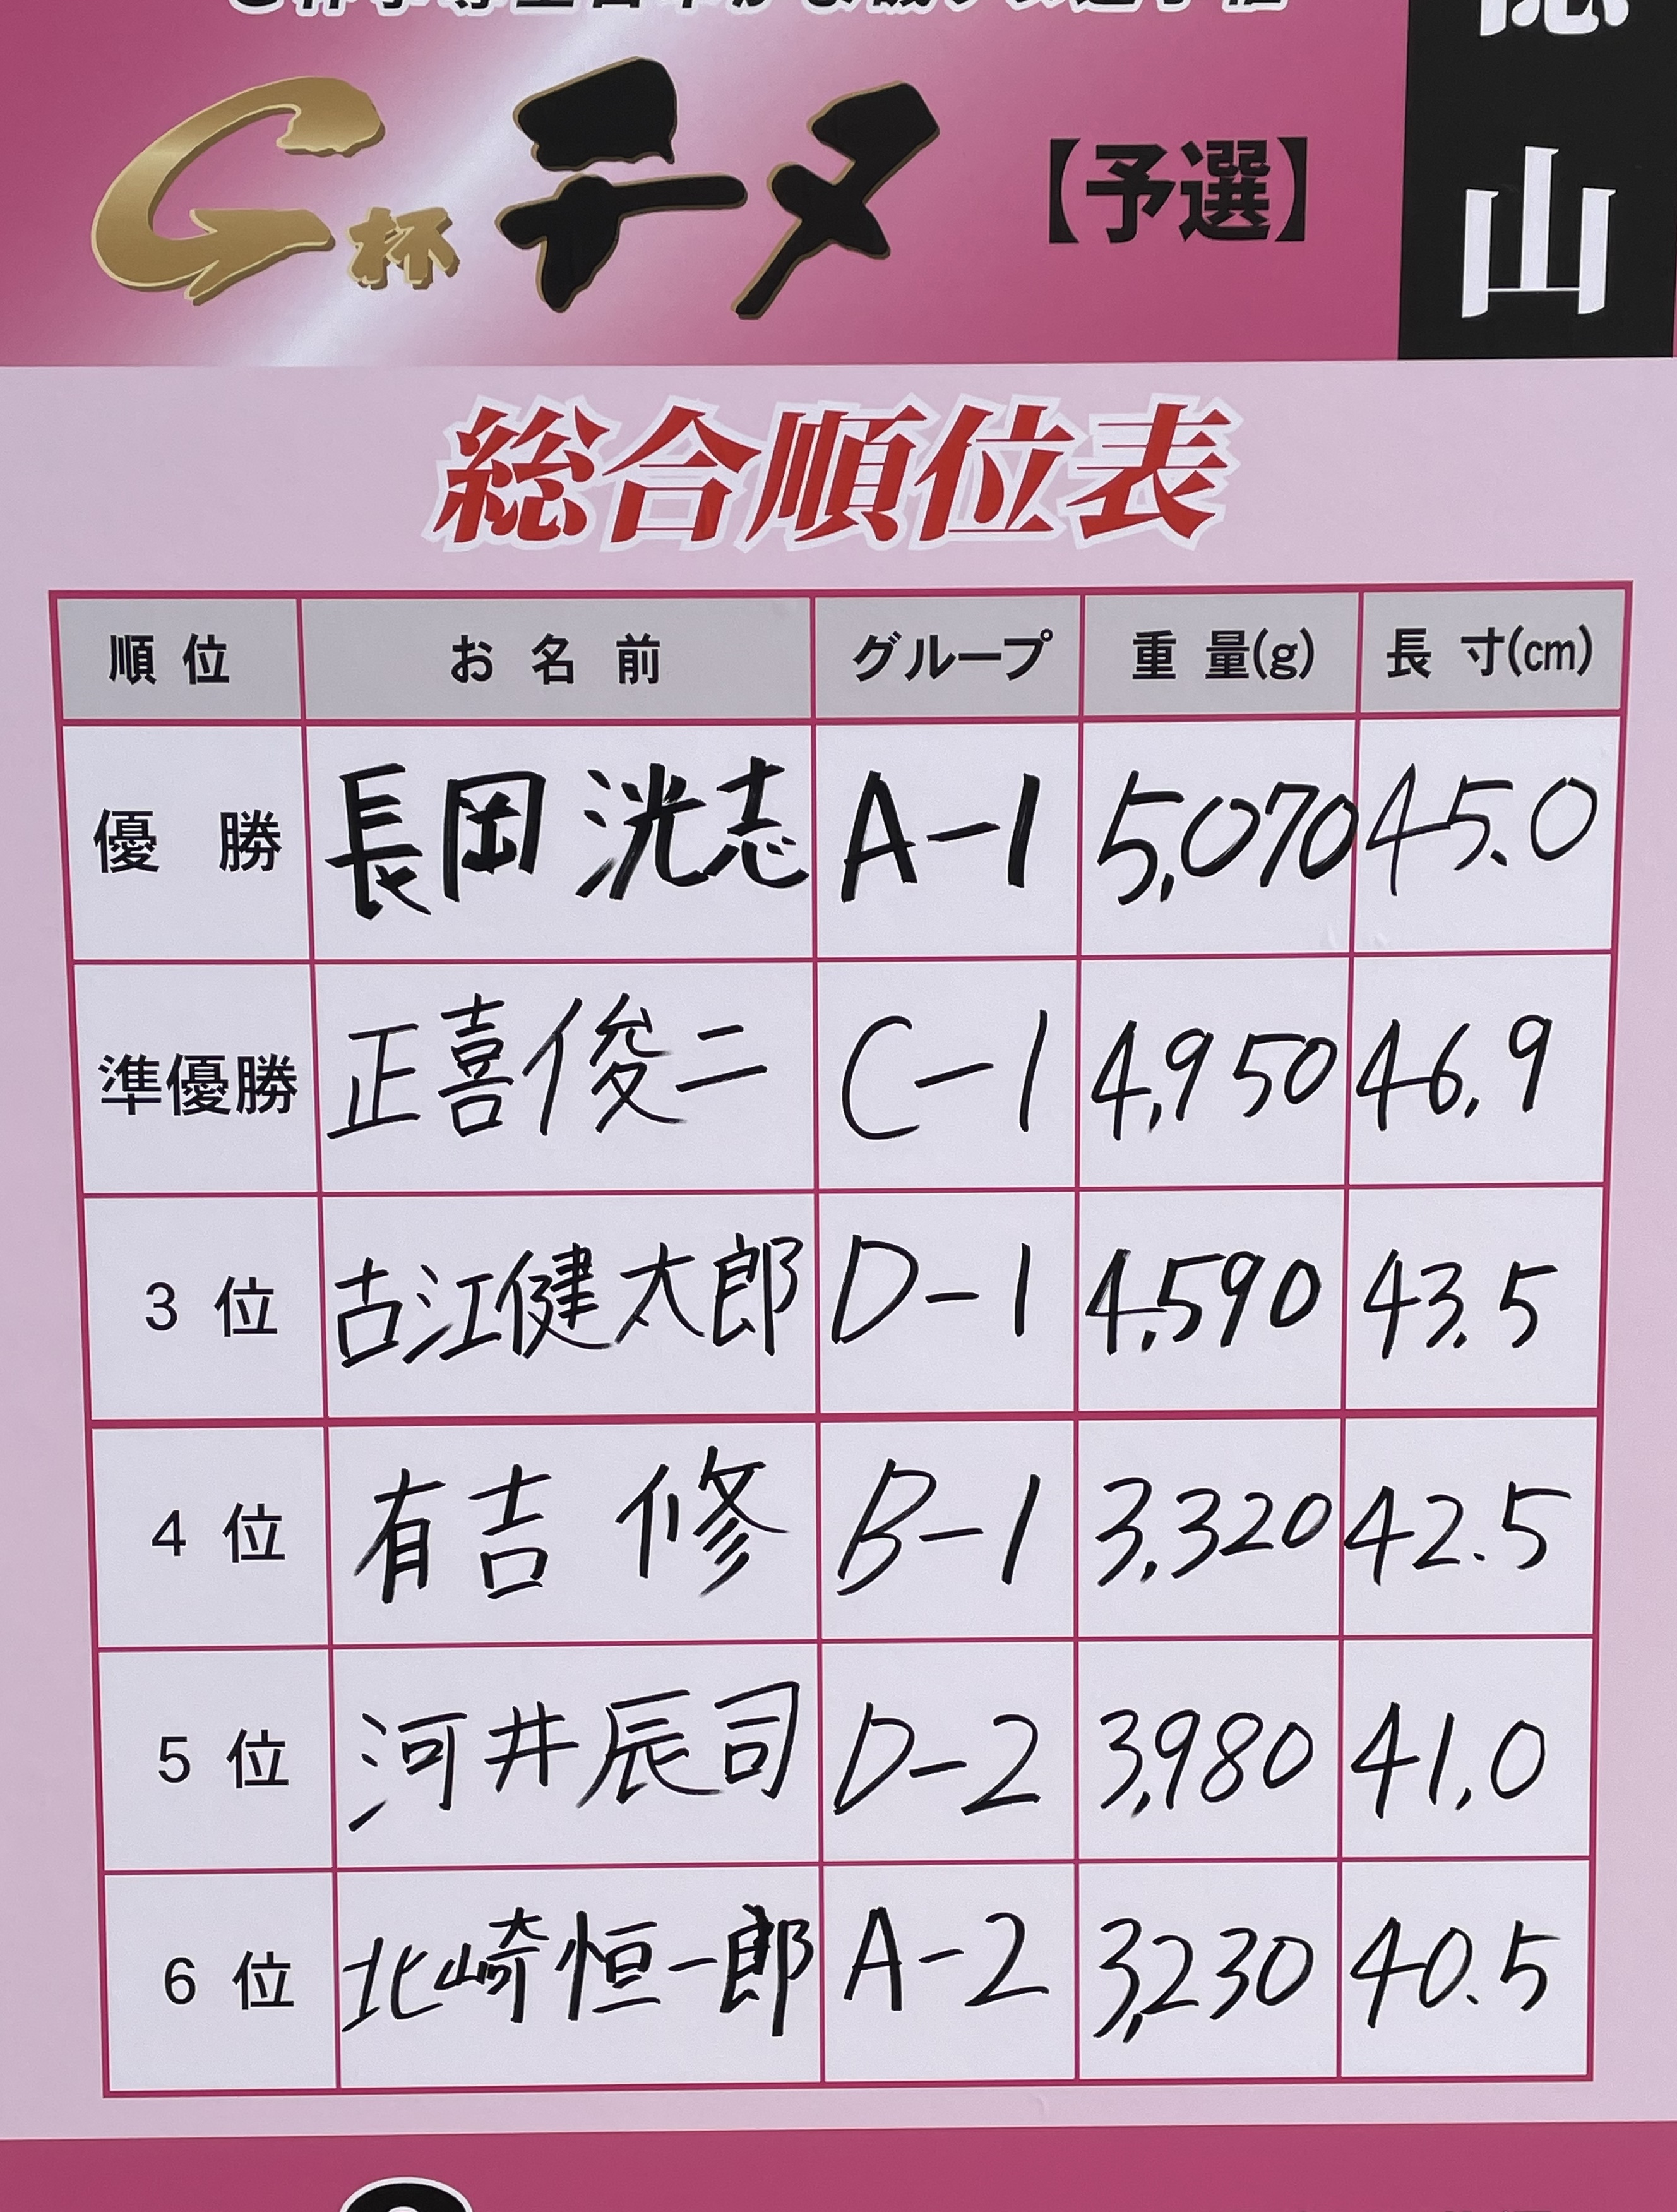 G杯チヌ【予選】
山
総合順位表
順位 お名前 グループ 重量(g) 長寸(cm)
優勝 長岡洸志 A-1 5,070 45.0
準優勝 正喜俊二 C-1 4,950 46.9
3位 古江健太郎 D-1 4,590 43.5
4位 有吉修 B-1 3,320 42.5
5位 河井辰司 D-2 3,980 41.0
6位 北崎恒一郎 A-2 3,230 40.5